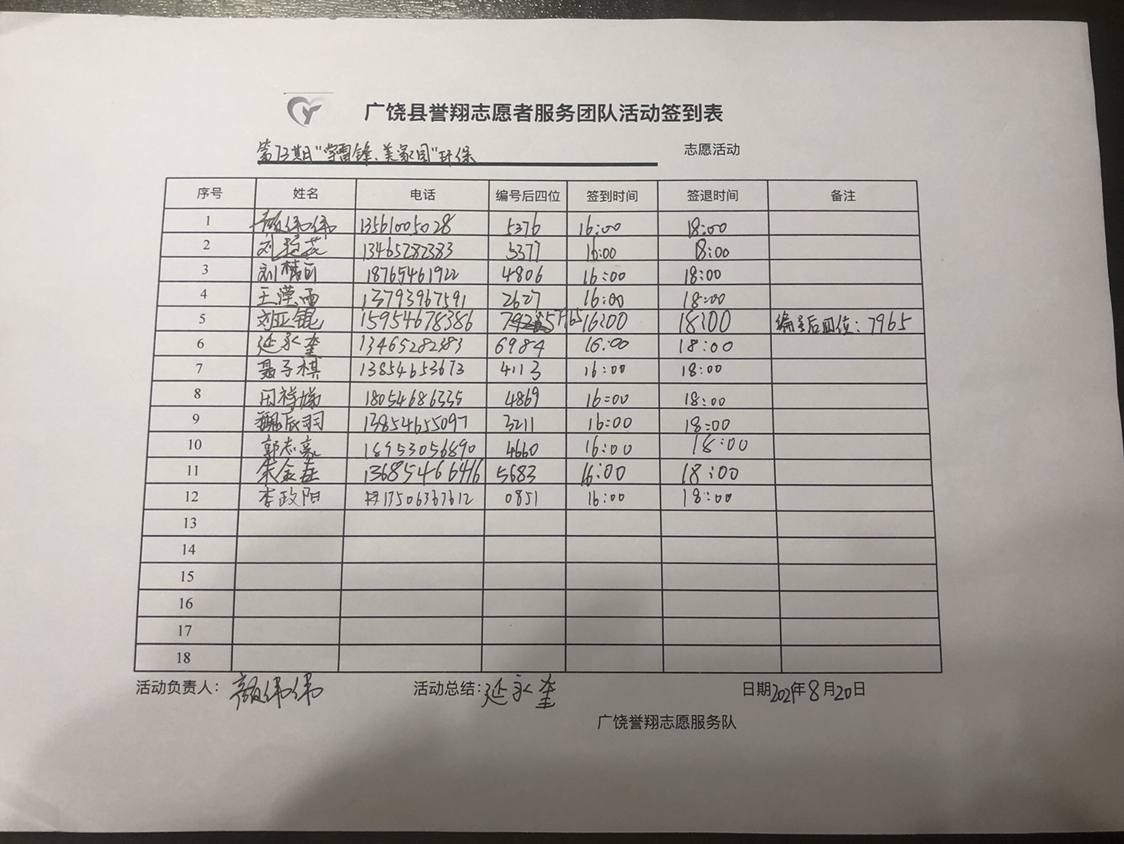 广饶县誉翔志愿者服务团队活动签到表
第73期“学雷锋、美家园”环保 志愿活动
序号 姓名 电话 编号后四位 签到时间 签退时间 备注
1 颜伟伟 13561005028 5376 16:00 18:00
2 刘 13465282383 5377 16:00 18:00
3 刘 18765461922 4806 16:00 18:00
4 王滢雨 13793967591 2627 16:00 18:00
5 刘亚锟 15954678386 7965 16:00 18:00 编号后四位：7965
6 延永奎 13465282383 6984 16:00 18:00
7 聂子棋 13854653673 4113 16:00 18:00
8 田祥瑞 18054686335 4869 16:00 18:00
9 魏辰羽 13854655097 3211 16:00 18:00
10 郭志豪 18953056890 4660 16:00 18:00
11 朱金 13685466416 5683 16:00 18:00
12 李政阳 17506367612 0851 16:00 18:00
13
14
15
16
17
18
活动负责人：颜伟伟 活动总结：延永奎 日期2021年8月20日
广饶誉翔志愿服务队